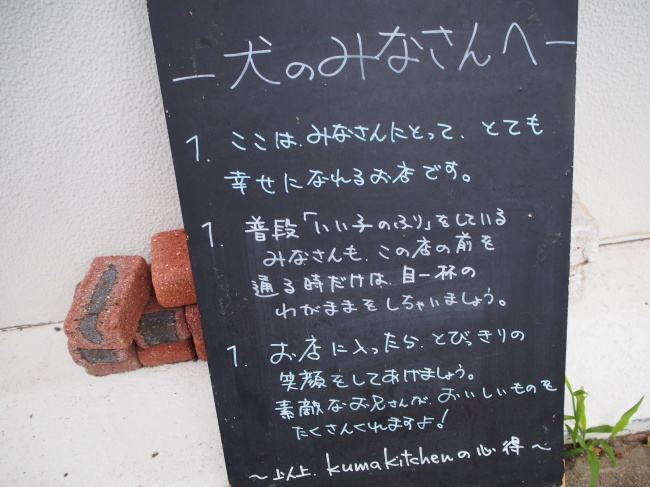 ― 犬のみなさんへ ―
1. ここは、みなさんにとって、とても
幸せになれるお店です。
1. 普段「いい子のふり」をしている
みなさんも、この店の前を
通る時だけは、目一杯の
わがままをしちゃいましょう。
1. お店に入ったら、とびっきりの
笑顔をしてあげましょう。
素敵なお兄さんが、おいしいものを
たくさんくれますよ!
～以上、kumakitchenの心得～